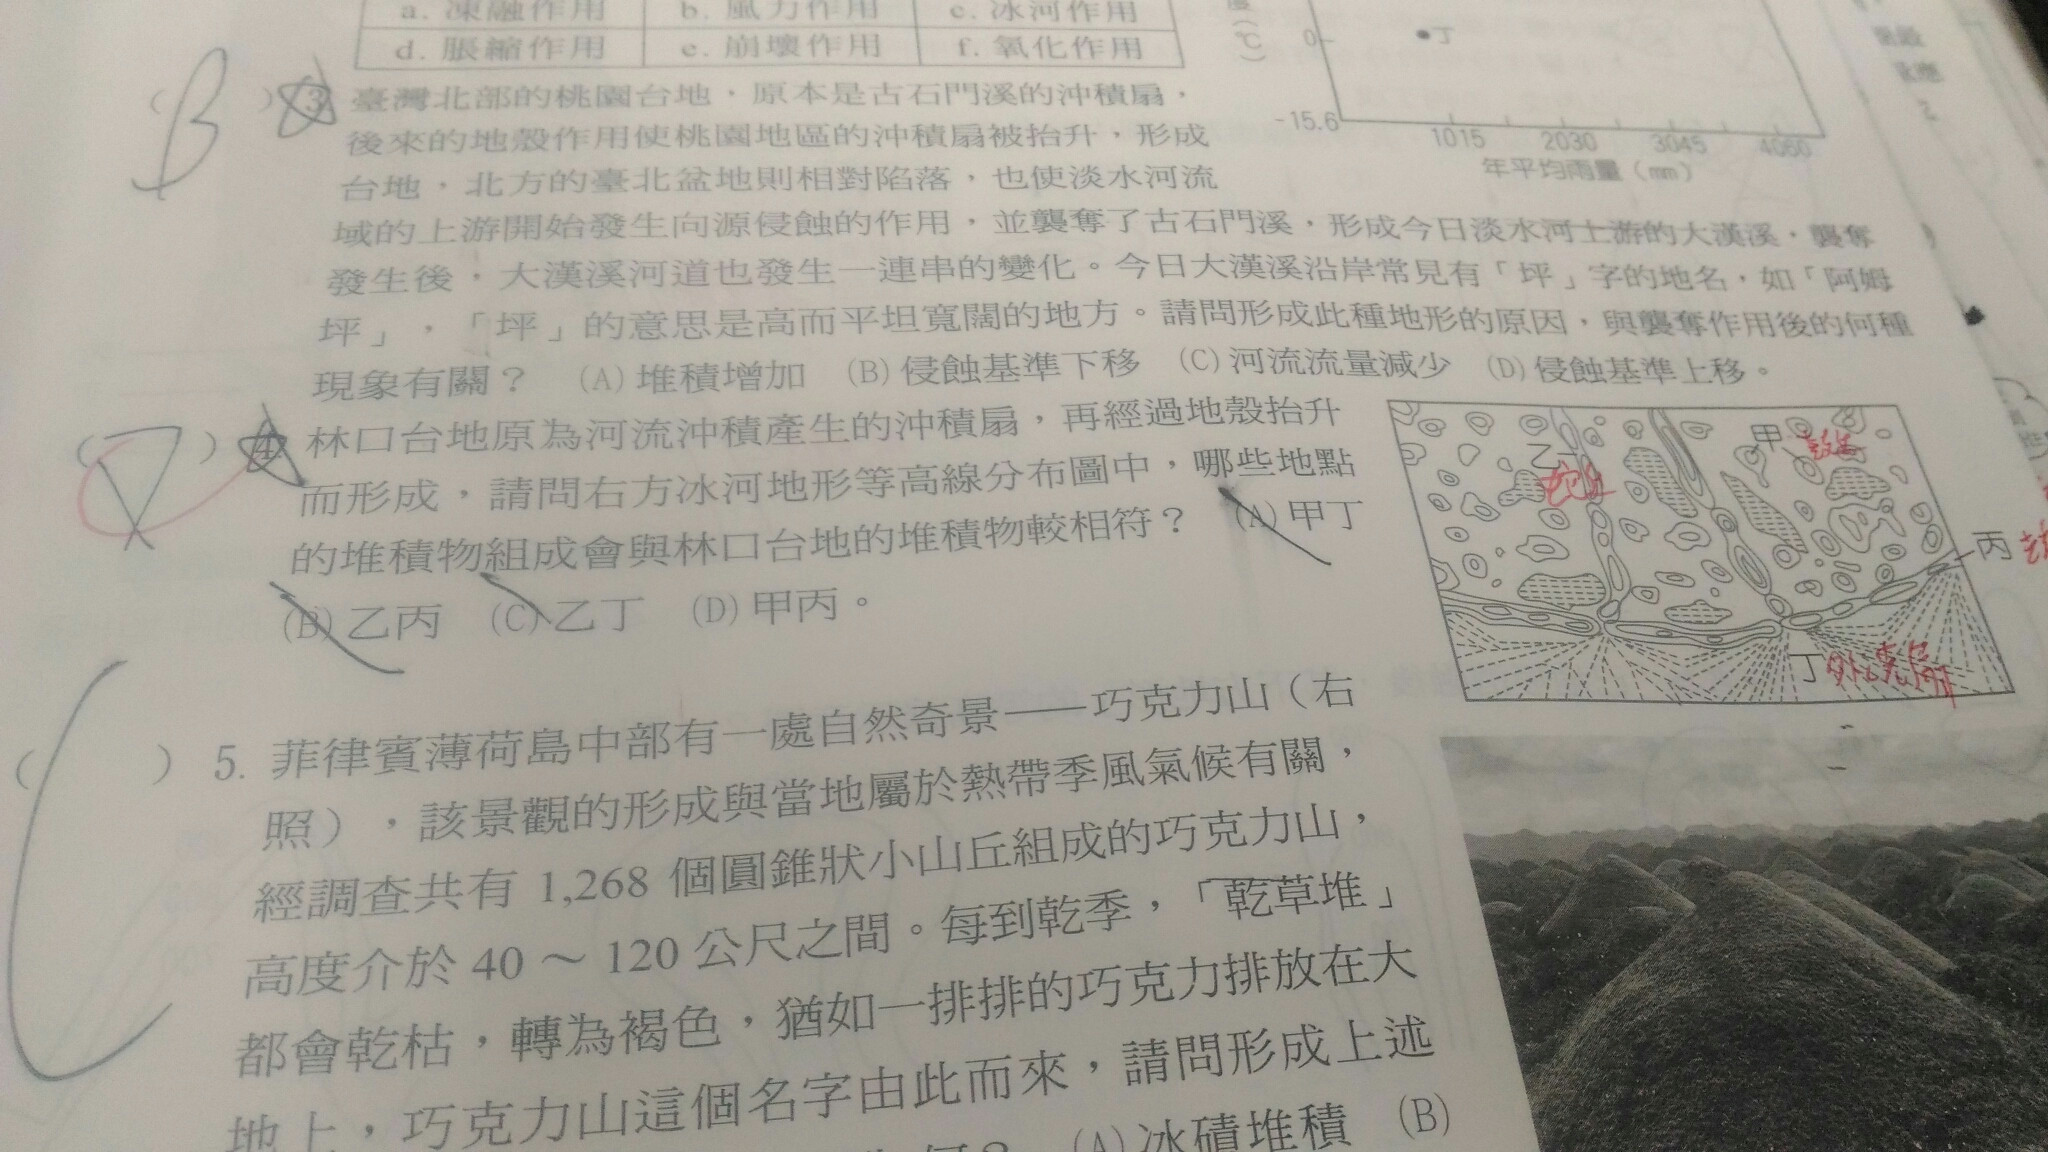 a. 凍融作用 b. 風力作用 c. 冰河作用
d. 脹縮作用 e. 崩壞作用 f. 氧化作用
(℃)
0
丁
-15.6
1015 2030 3045 4060
年平均雨量(mm)
( B ) 3 臺灣北部的桃園台地，原本是古石門溪的沖積扇，
後來的地殼作用使桃園地區的沖積扇被抬升，形成
台地，北方的臺北盆地則相對陷落，也使淡水河流
域的上游開始發生向源侵蝕的作用，並襲奪了古石門溪，形成今日淡水河上游的大漢溪，襲奪
發生後，大漢溪河道也發生一連串的變化。今日大漢溪沿岸常見有「坪」字的地名，如「阿姆
坪」，「坪」的意思是高而平坦寬闊的地方。請問形成此種地形的原因，與襲奪作用後的何種
現象有關？ (A)堆積增加 (B)侵蝕基準下移 (C)河流流量減少 (D)侵蝕基準上移。
( ) 4 林口台地原為河流沖積產生的沖積扇，再經過地殼抬升
而形成，請問右方冰河地形等高線分布圖中，哪些地點
的堆積物組成會與林口台地的堆積物較相符？ (A)甲丁
(B)乙丙 (C)乙丁 (D)甲丙。
甲
乙
丙
丁
( C ) 5. 菲律賓薄荷島中部有一處自然奇景——巧克力山（右
照），該景觀的形成與當地屬於熱帶季風氣候有關，
經調查共有 1,268 個圓錐狀小山丘組成的巧克力山，
高度介於 40～120 公尺之間。每到乾季，「乾草堆」
都會乾枯，轉為褐色，猶如一排排的巧克力排放在大
地上，巧克力山這個名字由此而來，請問形成上述
何？ (A)冰磧堆積 (B)